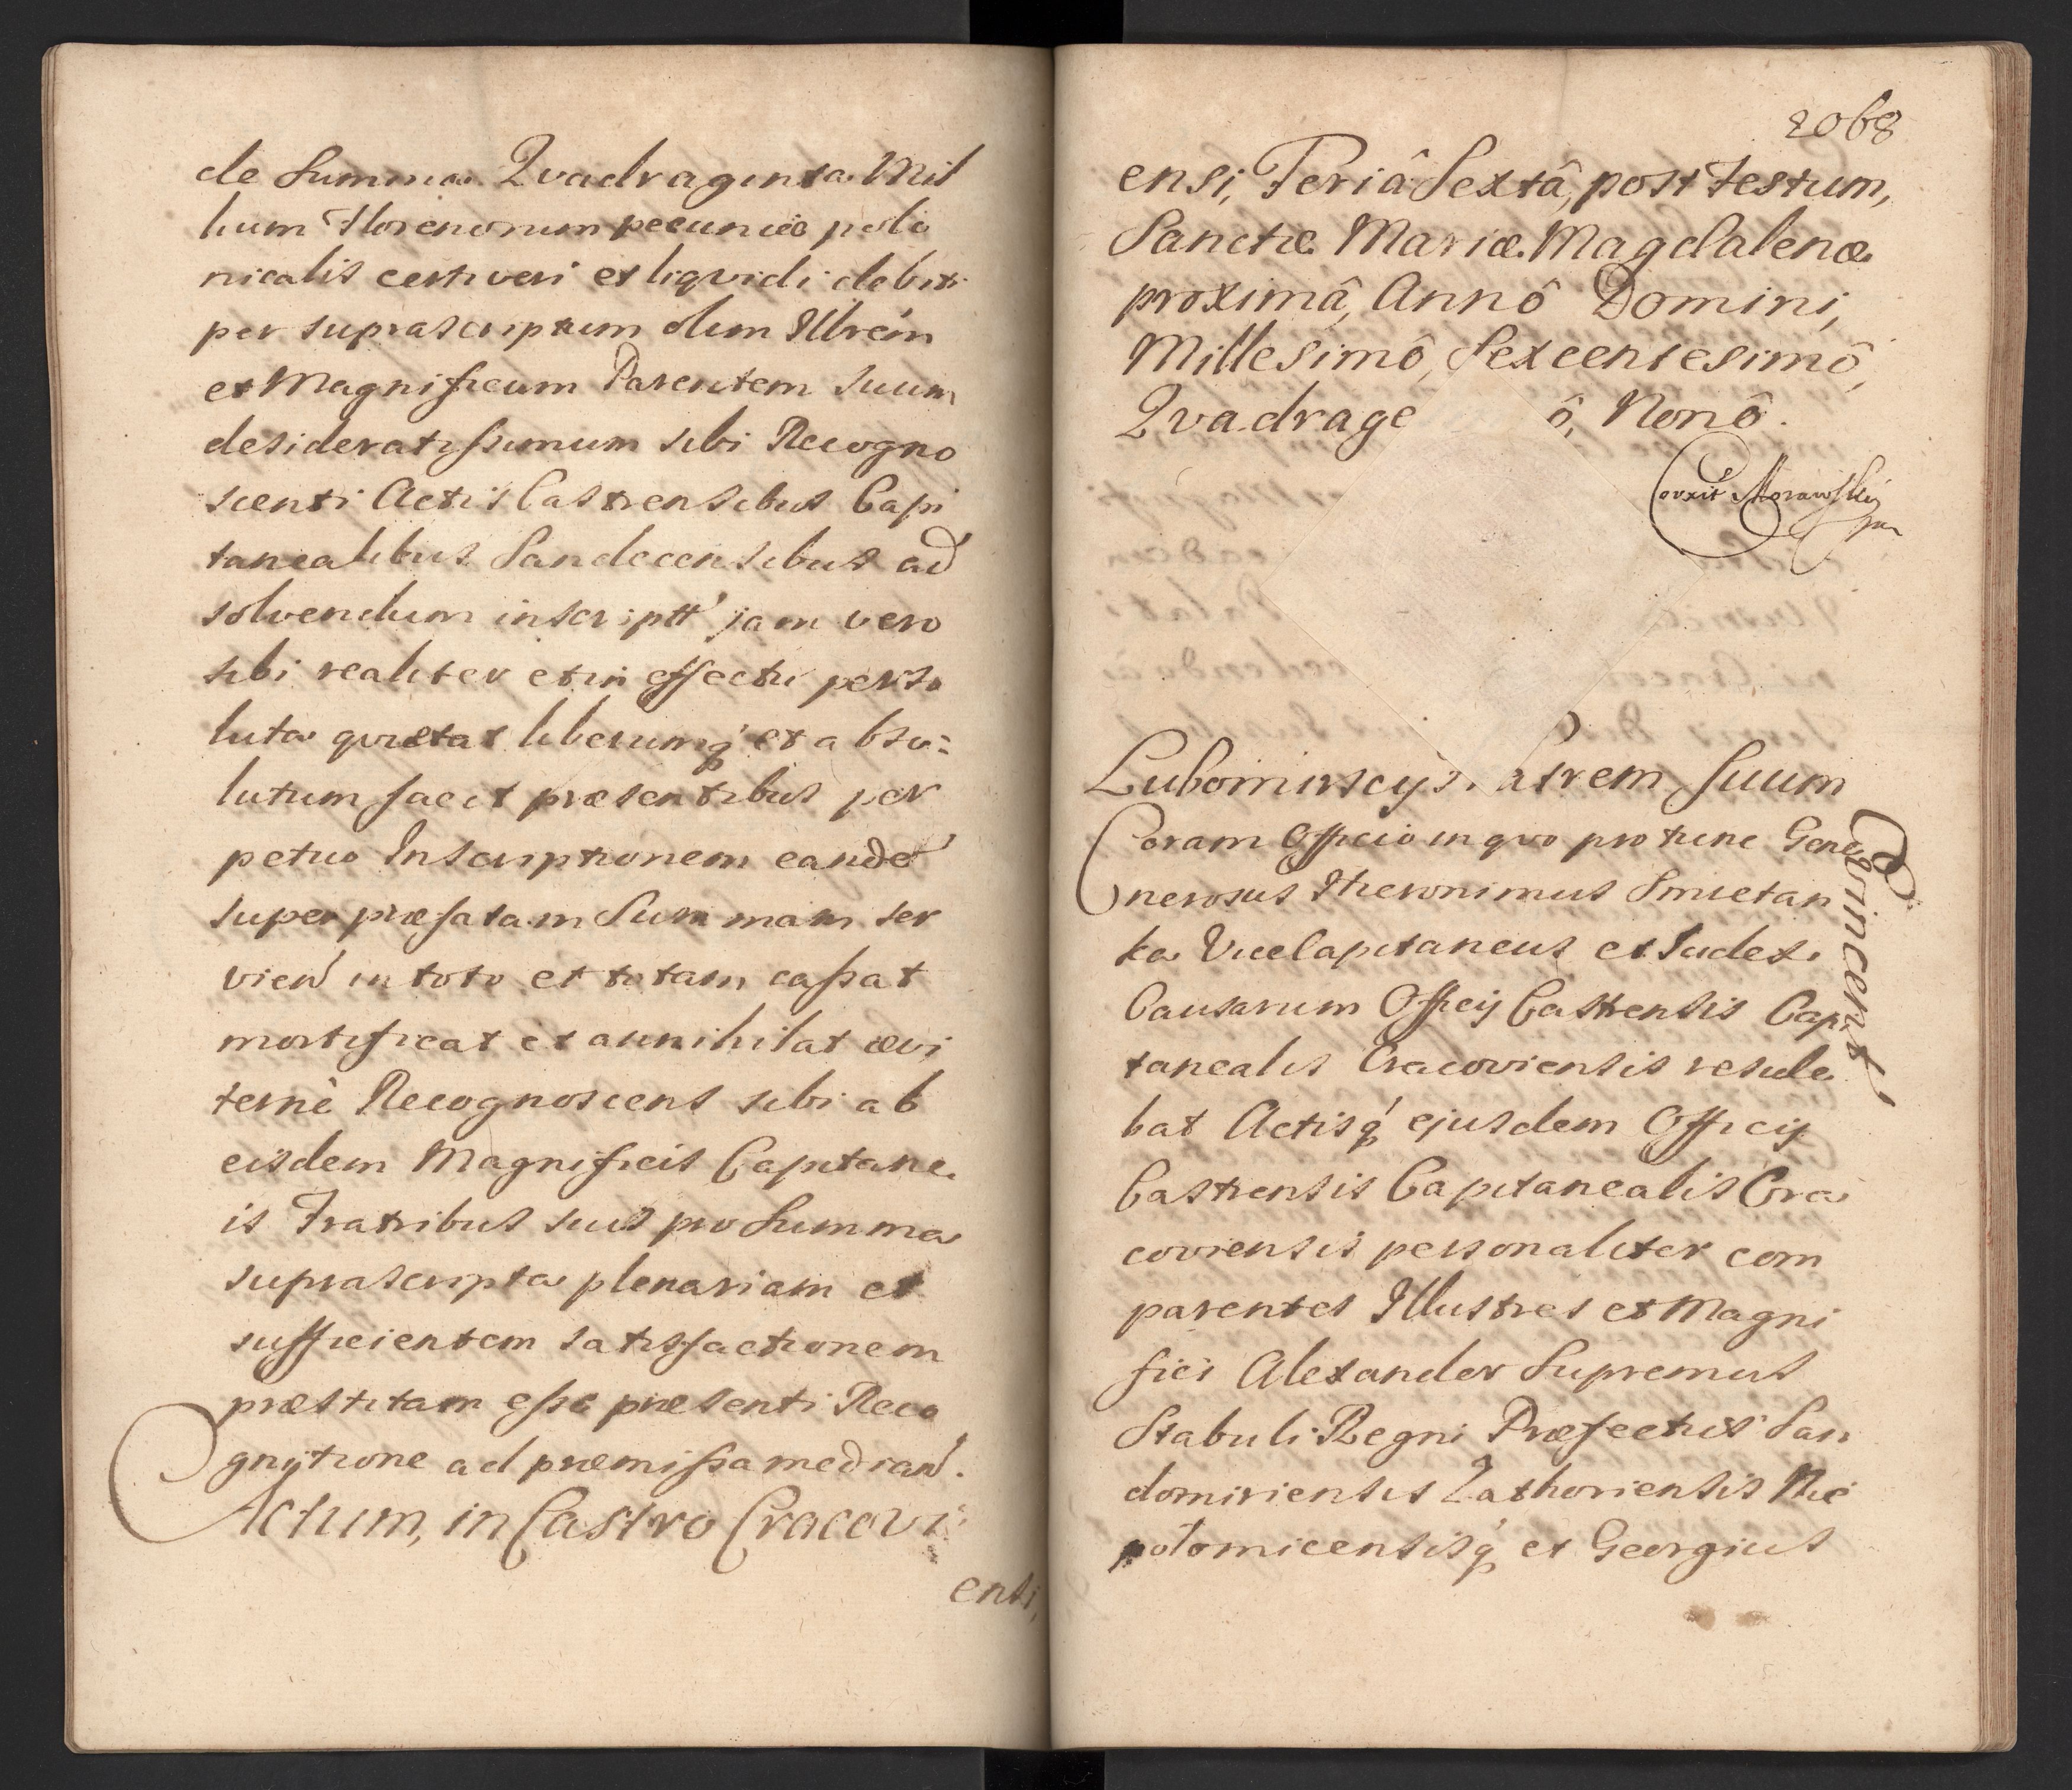 de Summa Quadraginta Mil
lium Florenorum pecuniæ polo
nicalis certi veri et liqvidi debiti
per suprascriptum olim Illrem
et Magnificum Parentem suum
desideratissimum sibi Recogno
scenti Actis Castrensibus Capi
tanealibus Sandecensibus ad
solvendum inscriptt' jam vero
sibi realiter et in effectu perso
luta qvietat liberumq' et abso:
lutum facit præsentibus per
petuo Inscriptionem eande'
super præfatam Summam ser
vien' in toto et totam cassat
mortificat et annihilat ævi
ternè Recognoscens sibi ab
eisdem Magnificis Capitane
is Fratribus suis pro Summa
suprascripta plenariam et
sufficientem satisfactionem
præstitam esse præsenti Reco
gnitione ad præmissa median'.
Actum, in Castro Cracovi:
ensi,
2068
ensi, Feriâ Sextâ, post Festum,
Sanctæ Mariæ Magdalenæ
proximâ, Annô Domini,
Millesimô, Sexcentesimô,
Qvadrage ô, Nonô.
Corrit Morawskj
Lubomirscys atrem, suum
Qvincent'
Coram Officio in qvo pro tunc Gene
nerosus Hieronimus Smietan
ka ViceCapitaneus et Judex
Causarum Officij Castrensis Capi
tanealis Cracoviensis reside
bat Actisq' ejusdem Officij
Castrensis Capitanealis Cra
coviensis personaliter com
parentes Illustres et Magni
fici Alexander Supremus
Stabuli Regni Præfectus San
domiriensis Zathoriensis Nie
polomicensisq' et Georgius